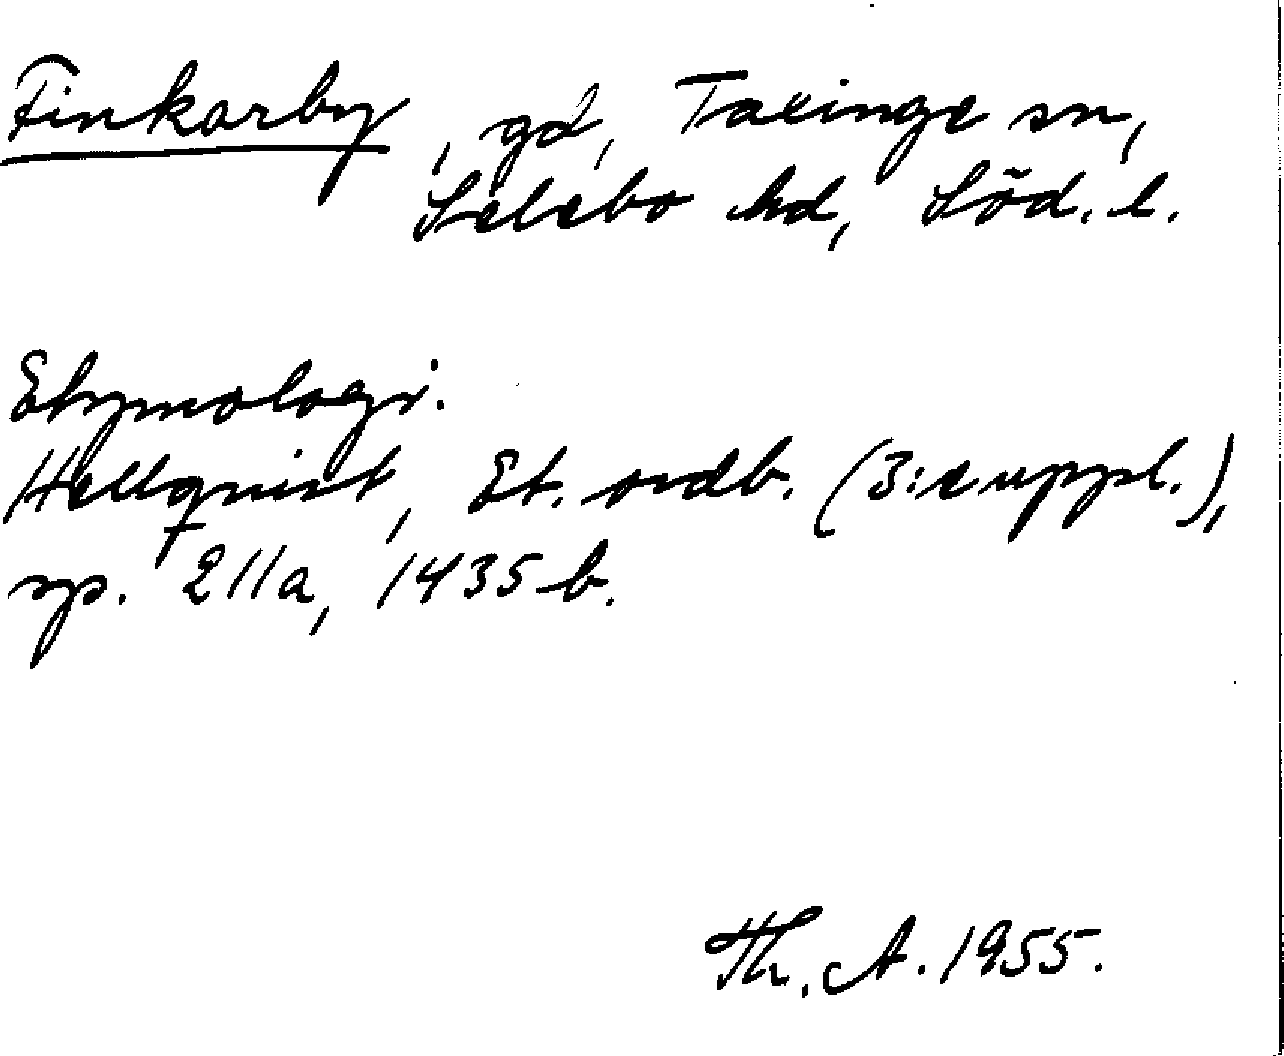 Finkarby, gd, Taxinge sn,
Selebo hd, Söd. l.
Etymologi.
Hellquist, Et. ordb. (3:e uppl.),
sp. 211a, 1435 b.
Th. A. 1955.